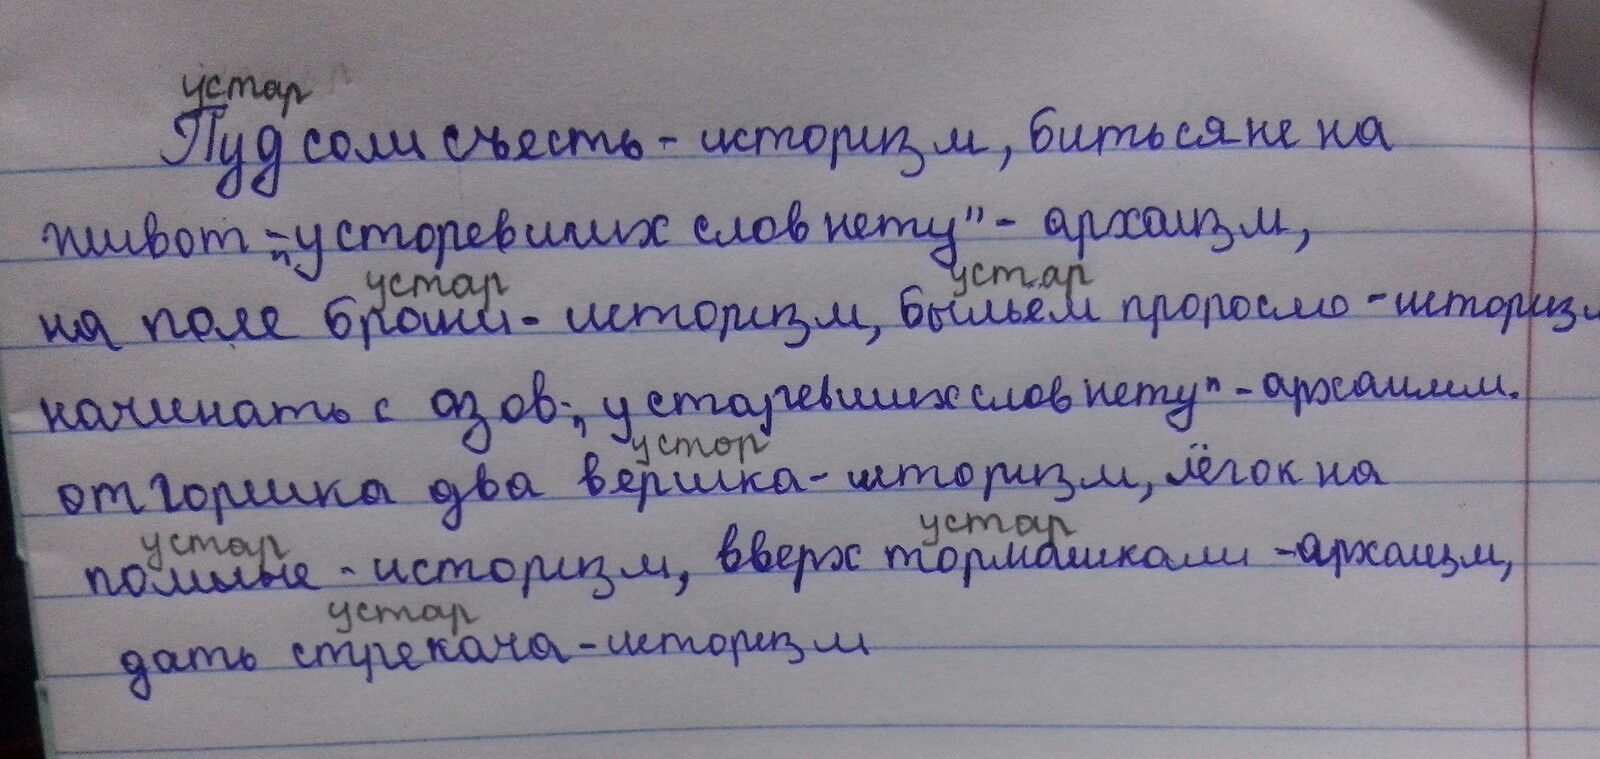 устар
Пуд соли съесть - историзм, биться не на
живот - "усторевших слов нету" - архаизм,
устар устар
на поле брани - историзм, быльём проросло - историзм
начинать с азов - "устаревших слов нету" - архаизм.
устор
от горшка два вершка - историзм, лёгок на
устар устар
помине - историзм, вверх тормашками - архаизм,
устар
дать стрекача - историзм